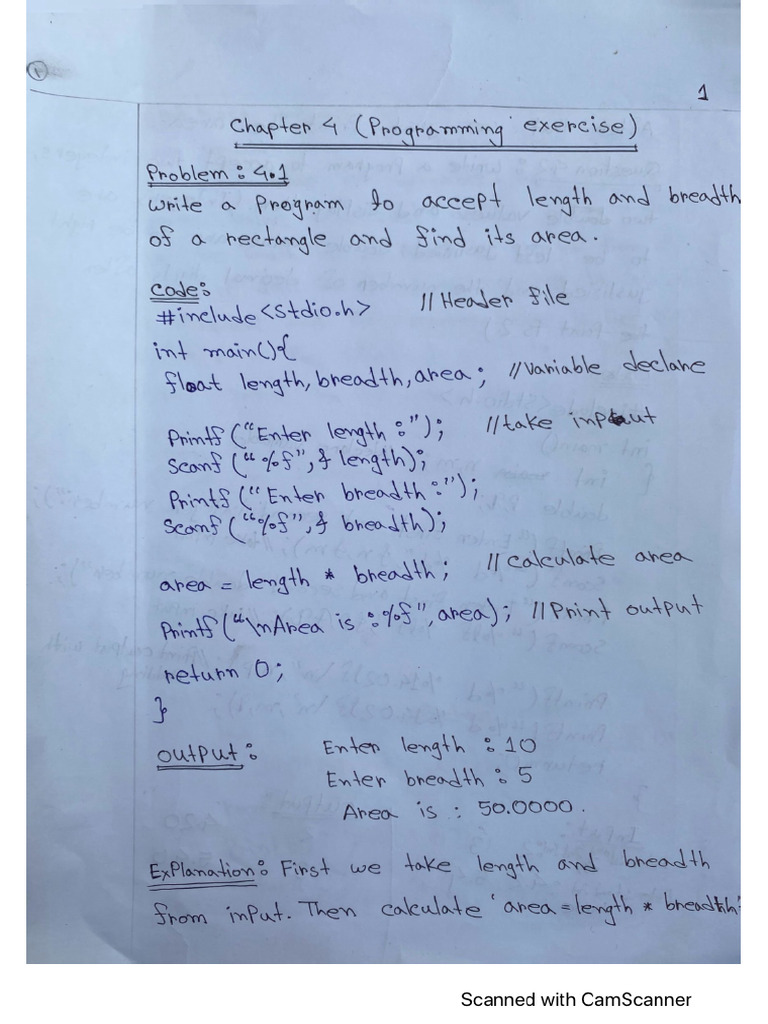 1
1
Chapter 4 (Programming exercise)
Problem : 4.1
Write a Program to accept length and breadth
of a rectangle and find its area.
Code:
#include <stdio.h> // Header file
int main(){
float length, breadth, area; // variable declare
Printf ("Enter length :"); // take input
Scanf ("%f", & length);
Printf ("Enter breadth :");
Scanf ("%f", & breadth);
area = length * breadth; // calculate area
Printf ("\nArea is : %f", area); // Print output
return 0;
}
output : Enter length : 10
Enter breadth : 5
Area is : 50.0000.
Explanation: First we take length and breadth
from input. Then calculate 'area = length * breadth'
Scanned with CamScanner